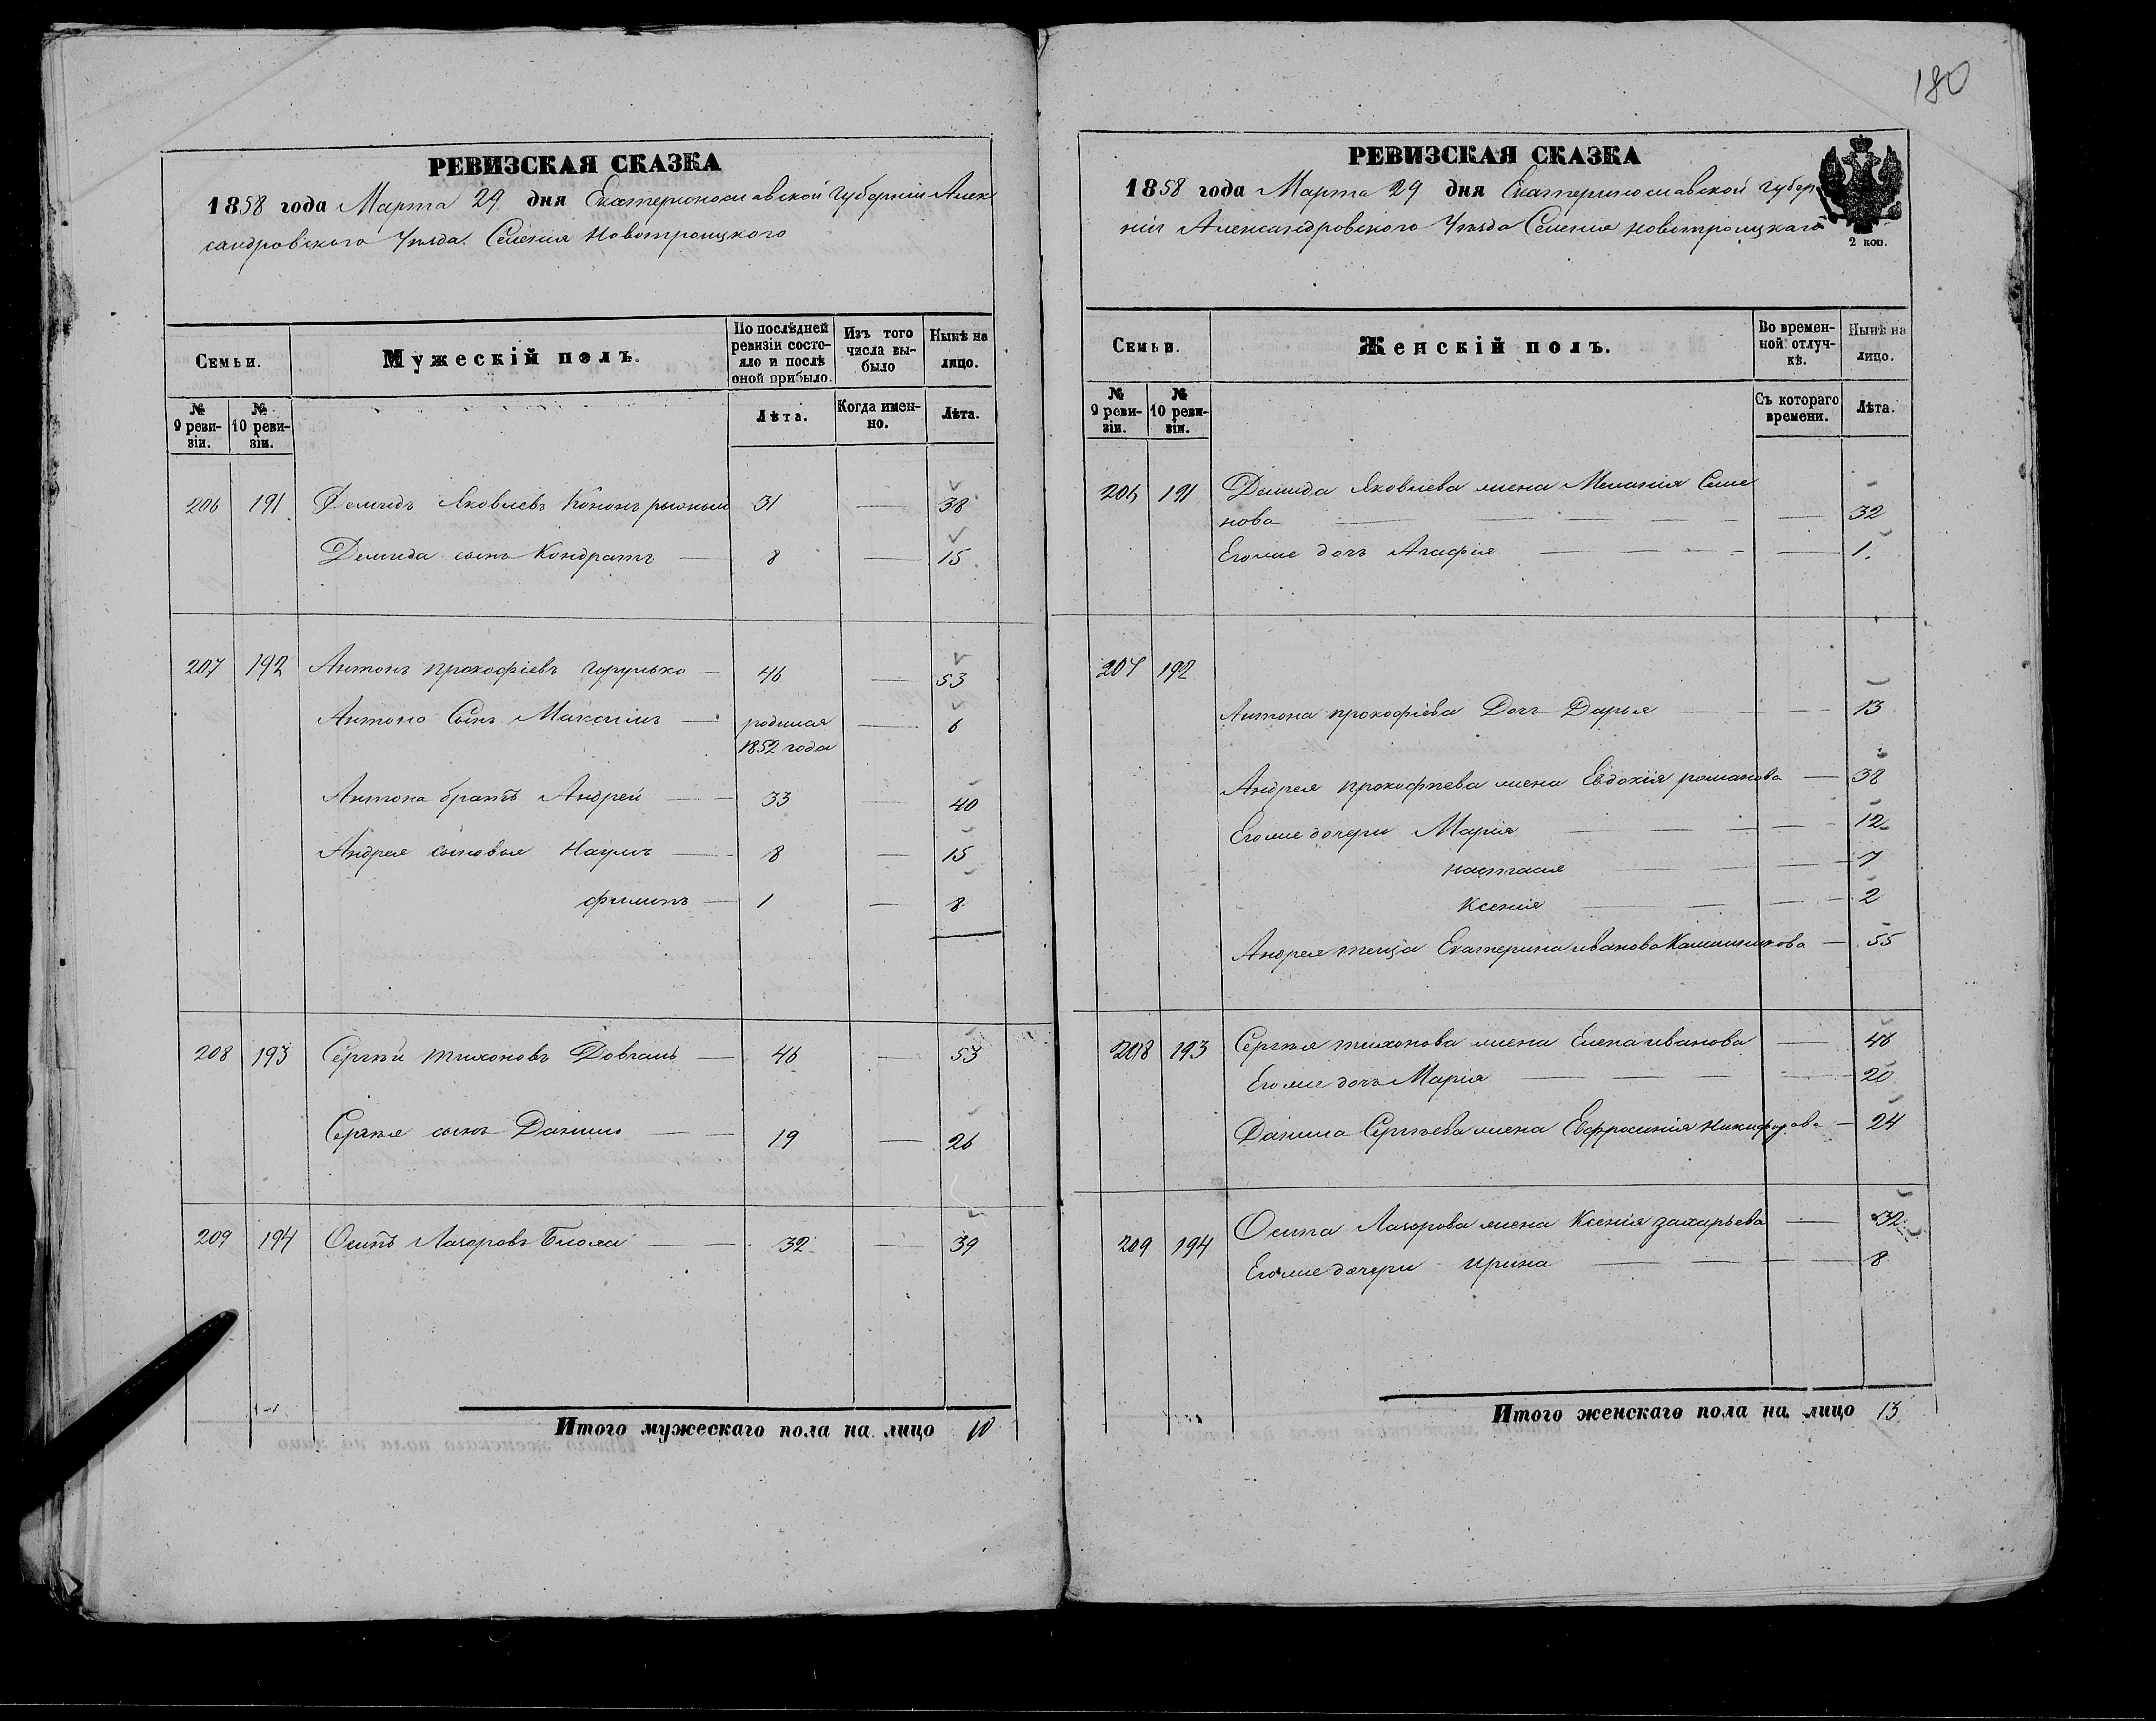 180
РЕВИЗСКАЯ СКАЗКА
1858 года Марта 29 дня Екатеринославской Губерніи Алек
сандровского Уѣзда Селенія Новотроицкого
Семьи.
Мужескій полъ.
По послѣдней ревизіи состояло и послѣ оной прибыло.
Изъ того числа выбыло
Нынѣ на лицо.
№ 9 ревизіи.
№ 10 ревизіи.
Лѣта.
Когда именно.
Лѣта.
206 191 Демидъ Яковлевъ 31 — 38
Демида сынъ Кондратъ — 8 — 15
207 192 Антонъ прокофіевъ — 46 — 53
Антона Сынъ Максимъ — родился — 6
1852 года
Антона братъ Андрей — 33 — 40
Андрея сыновья Наумъ — 8 — 15
филипъ — 1 — 8
208 193 Сергѣй тихоновъ Довгаль — 46 — 53
Сергѣя сынъ Данило — 19 — 26
209 194 Осипъ Лазоровъ — 32 — 39
Итого мужескаго пола на лицо 10
РЕВИЗСКАЯ СКАЗКА
1858 года Марта 29 дня Екатеринославской Губер
ніи Александровского Уѣзда Селенія новотроицкаго
2 коп.
Семьи.
Женскій полъ.
Во временной отлучкѣ.
Нынѣ на лицо.
№ 9 ревизіи.
№ 10 ревизіи.
Съ котораго времени.
Лѣта.
206 191 Демида Яковлева жена Меланія Семе
нова — 32
Егоже дочь Агафія — 1
207 192
Антона прокофіева Дочь Дарья — 13
Андрея прокофиева жена Евдокія романова — 38
Егоже дочери Марія — 12
настасия — 7
Ксенія — 2
Андрея теща Екатерина иванова — 55
208 193 Сергѣя тихонова жена Елена иванова — 46
Егоже дочь Марія — 20
Данила Сергѣева жена Евфросинія Никифорова — 24
209 194 Осипа Лазорова жена Ксенія захарьева — 32
Егоже дочери ирина — 8
Итого женскаго пола на лицо 13